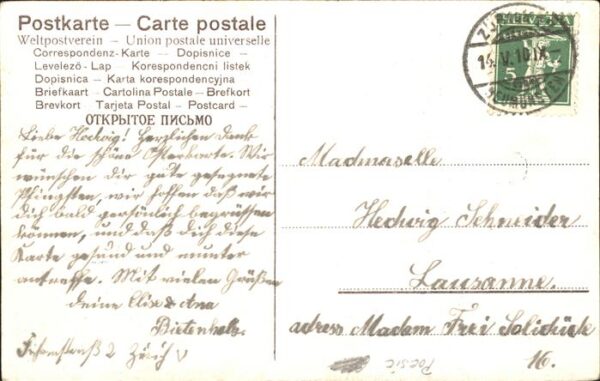 Postkarte — Carte postale
Weltpostverein — Union postale universelle
Correspondenz-Karte — Dopisnice —
Levelező-Lap — Korespondencni listek
Dopisnica — Karta korespondencyjna
Briefkaart — Cartolina Postale — Brefkort
Brevkort — Tarjeta Postal — Postcard —
ОТКРЫТОЕ ПИСЬМО
Liebe Hedwig! Herzlichen Dank
für die schöne Osterkarte. Wir
wünschen dir gute gesegnete
Pfingsten, wir hoffen daß wir
dich bald persönlich begrüssen
können, und daß dich diese
Karte gesund und munter
antreffe. Mit vielen Grüßen
deine Elise & Ana
Bietenholz.
2 Zürich V
14.V.10.IX—
5
Madmaselle
Hedwig Schneider
Lausanne.
adress Madam Frei
16.
Poesie